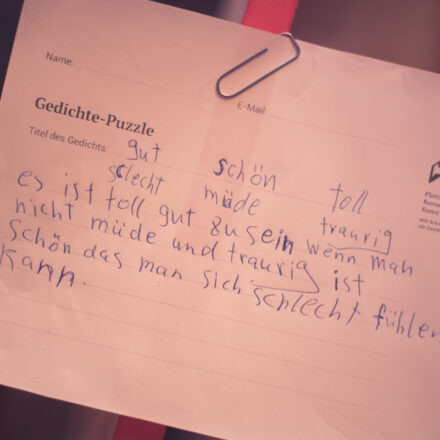 Name:
E-Mail:
Gedichte-Puzzle
Titel des Gedichts:
gut schön toll
sclecht müde traurig
es ist toll gut zu sein wenn man
nicht müde und traurig ist
schön das man sich schlecht fühlen
kann.